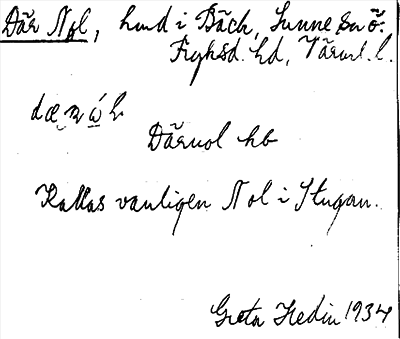 Där Nol, hmd i Bäck, Sunne sn
Fryksd. hd, Värml. l.
Därnol hb
Kallas vanligen Nol i Stugan.
Greta Hedin 1934